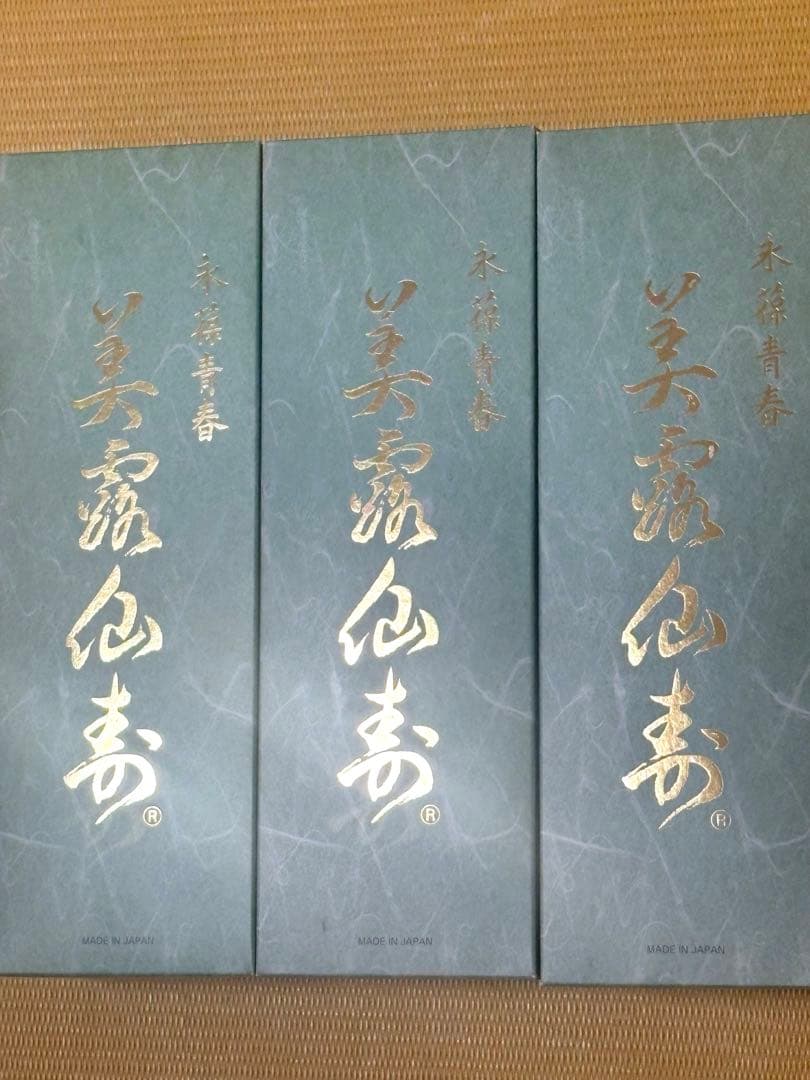 永葆青春
美露仙寿®
MADE IN JAPAN
永葆青春
美露仙寿®
MADE IN JAPAN
永葆青春
美露仙寿®
MADE IN JAPAN